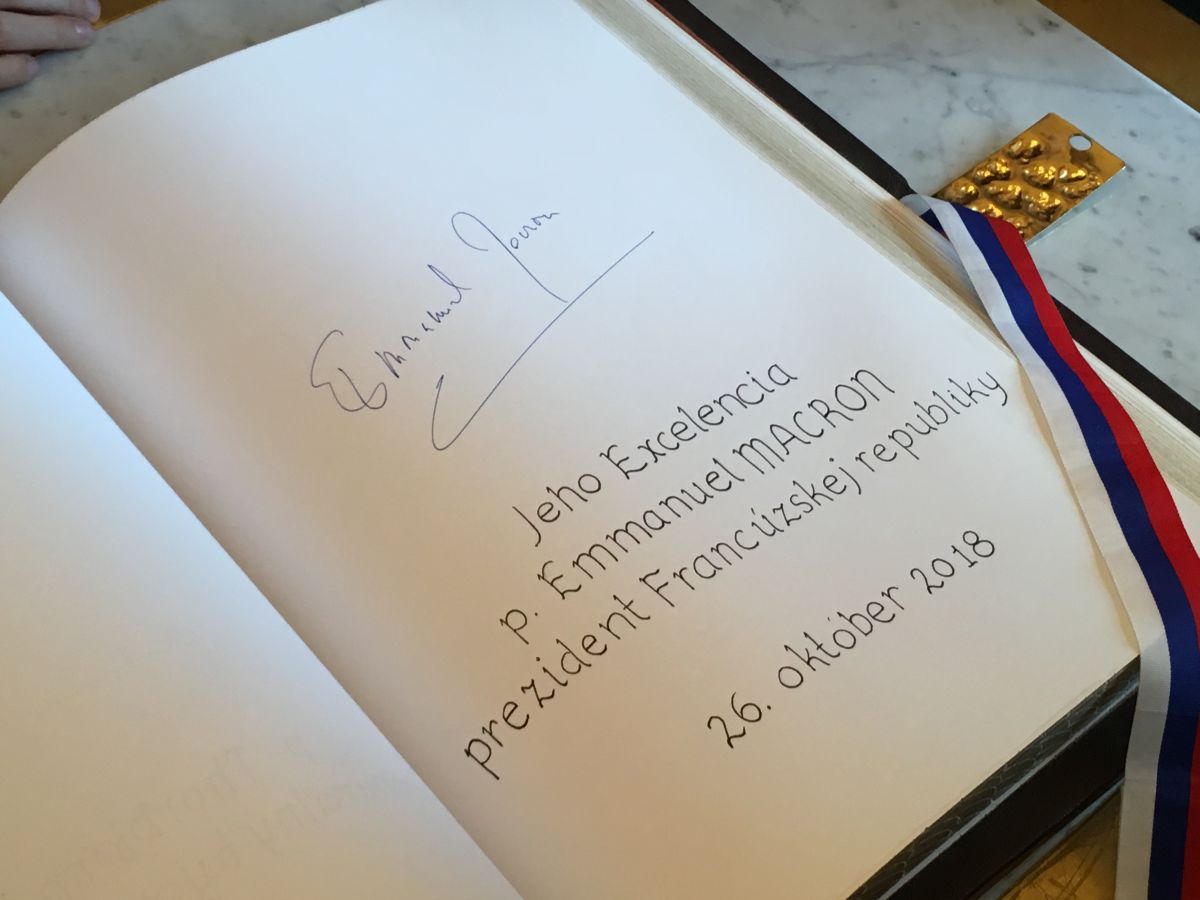 Emmanuel Macron
Jeho Excelencia
p. Emmanuel MACRON
prezident Francúzskej republiky
26. október 2018